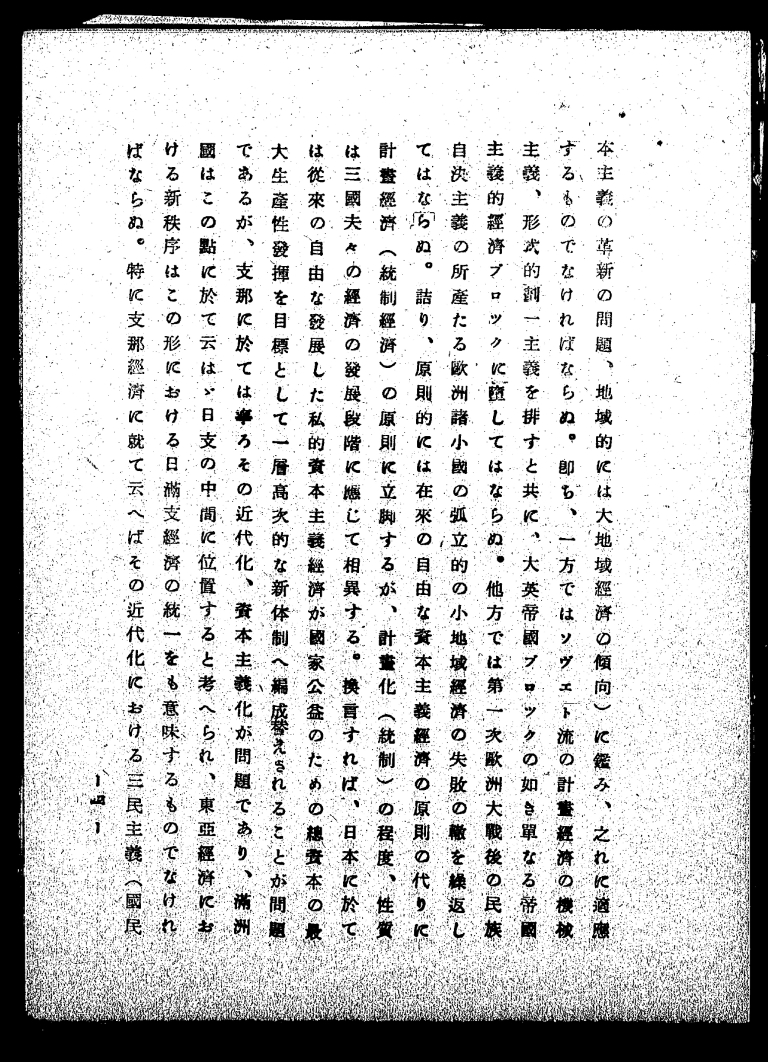 本主義の革新の問題、地域的には大地域經濟の傾向）に鑑み、之れに適應
するものでなければならぬ。卽ち、一方ではソヴェト流の計畫經濟の機械
主義、形式的劃一主義を排すと共に、大英帝國ブロックの如き單なる帝國
主義的經濟ブロックに墮してはならぬ。他方では第一次歐洲大戰後の民族
自決主義の所產たる歐洲諸小國の弧立的の小地域經濟の失敗の轍を繰返し
てはならぬ。詰り、原則的には在來の自由な資本主義經濟の原則の代りに
計畫經濟（統制經濟）の原則に立脚するが、計畫化（統制）の程度、性質
は三國夫々の經濟の發展段階に應じて相異する。換言すれば、日本に於て
は從來の自由な發展した私的資本主義經濟が國家公益のための總資本の最
大生產性發揮を目標として一層高次的な新体制へ編成替えされることが問題
であるが、支那に於ては寧ろその近代化、資本主義化が問題であり、滿洲
國はこの點に於て云はゞ日支の中間に位置すると考へられ、東亞經濟にお
ける新秩序はこの形における日滿支經濟の統一をも意味するものでなけれ
ばならぬ。特に支那經濟に就て云へばその近代化における三民主義（國民